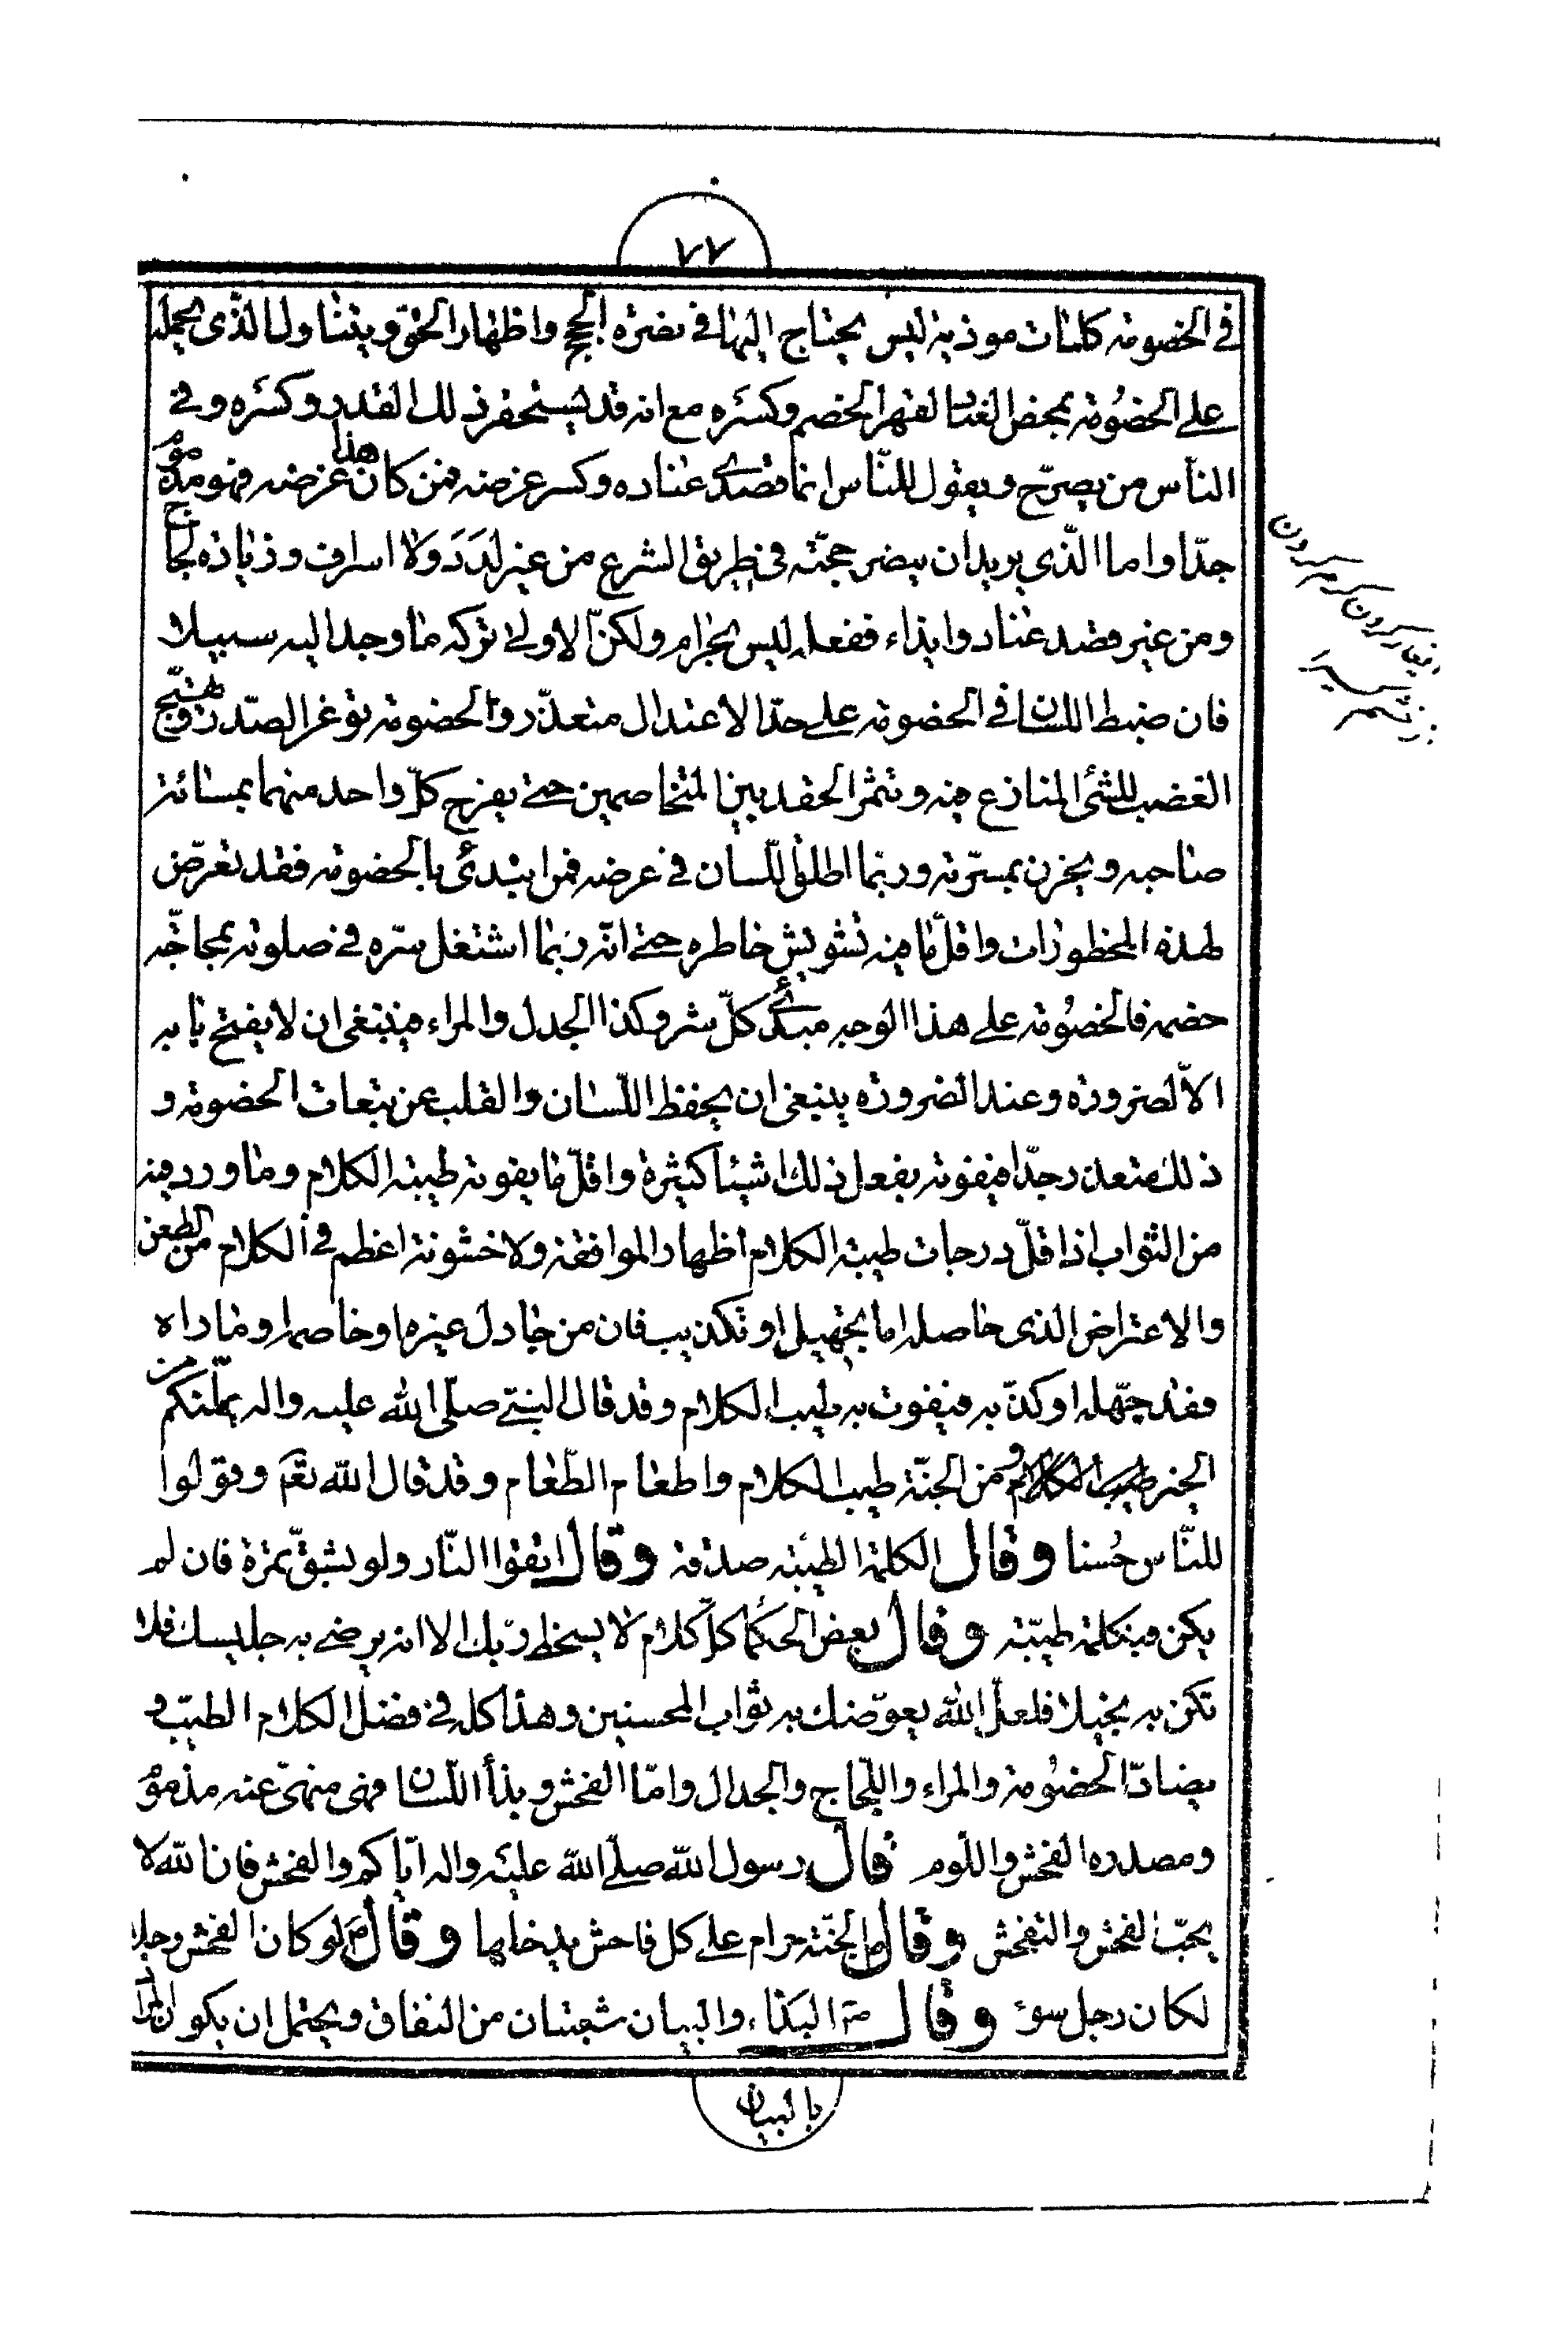 ٧٧
في الخصومة كلمات موذية ليس يحتاج اليها في نصرة الحجج واظهار الحق ويتناول الذي يحمله
على الخصومة بمحض العناد لقهر الخصم وكسره مع انه قد يستحقر ذلك القدر وكسره وفي
الناس من يصرّح ويقول للنّاس انما قصدي عناده وكسر عرضه فمن كان هذا غرضه فهو مذموم
جدّا واما الّذي يريد ان ينصر حجّته في طريق الشرع من غير لدَدَ ولا اسراف وزيادة لجاج
ومن غير قصد عناد وايذاء ففعله ليس بحرام ولكنّ الاولى تركه ما وجد اليه سبيلا
فان ضبط اللسان في الخصومة على حدّ الاعتدال متعذّر والخصومة توغر الصّدر وتهيّج
الغضب للشئ المتنازع فيه وتثمر الحقد بين المتخاصمين حتى يفرح كلّ واحد منهما بمسائة
صاحبه ويحزن بمسرّته وربما اطلق اللّسان في عرضه فمن ابتدئ بالخصومة فقد تعرّض
لهذه المحظورات واقلّ ما فيه تشويش خاطره حتى انّه ربما اشتغل سرّه في صلوته بمحاجّه
خصمه فالخصُومة على هذا الوجه مبدئ كلّ شر وكذا الجدل والمراء فينبغي ان لا يفتح بابه
الاّ لضرورة وعند الضرورة ينبغي ان يحفظ اللّسان والقلب عن تبعات الخصومة و
ذلك متعذر جدّا فيفوته بفعل ذلك اشيئا كثيرة واقلّ ما يفوته طيبة الكلام وما ورد فيه
من الثواب اذ اقلّ درجات طيبة الكلام اظهار الموافقة ولا خشونة اعظم في الكلام من الطعن
والاعتراض الذي حاصله اما تجهيل او تكذيب فان من جادل غيره او خاصمه او ماراه
فقد جهّله او كذّبه فيفوت به طيب الكلام وقد قال النبيّ صلّى الله عليه واله يمكّنكم من
الجنة طيب الكلام و من الجنّة طيب الكلام واطعام الطّعام وقد قال الله تعَ وقولوا
للنّاس حُسنا وقال الكلمة الطيّبة صدقة وقال اتقوا النّار ولو بشقّ تمرة فان لم
يكن فبكلمة طيّبة وقال بعض الحكما كلّ كلام لا يسخط ربّك الا انه يرضى به جليسك فلا
تكن به بخيلا فلعلّ الله يعوّضك به ثواب المحسنين وهذا كله في فضل الكلام الطيّب و
يضادّ الخصُومة والمراء واللّجاج والجدال وامّا الفحش وبذأ اللّسان فهى منهىّ عنه مذموم
ومصدره الفحش واللّوم قال رسول الله صلّى الله عليه واله ايّاكم والفحش فان الله لا
يحبّ الفحش والتفحّش وقال الجنّة حرام على كل فاحش يدخلها وقال لو كان الفحش رجلا
لكان رجل سوءٍ وقال البذاء والبيان شعبتان من النفاق ويحتمل ان يكون المراد
بالبيان